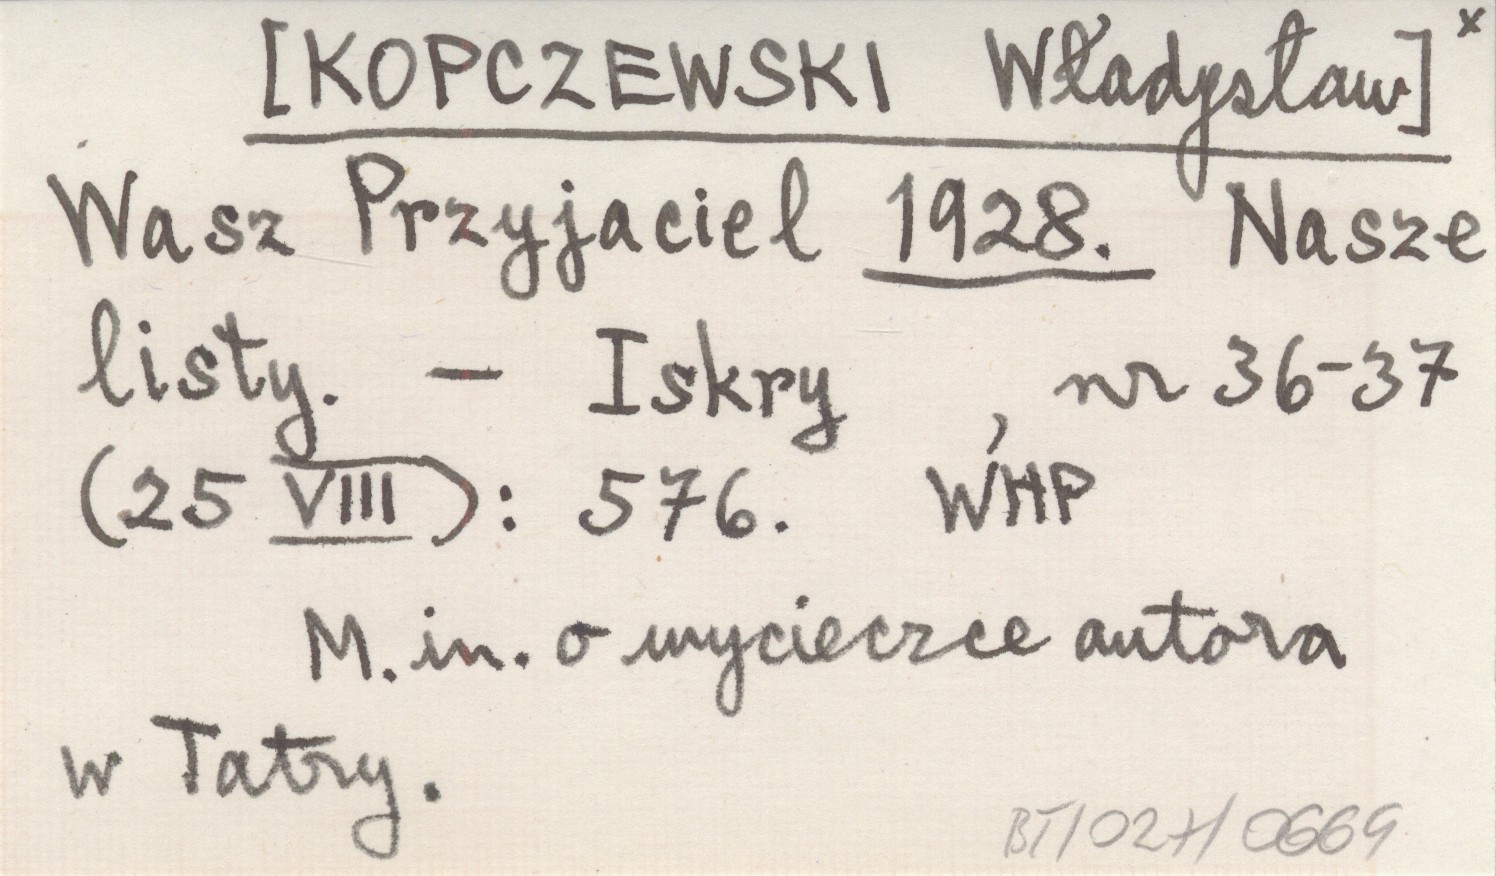 [KOPCZEWSKI Władysław]x
Wasz Przyjaciel 1928. Nasze
listy. – Iskry , nr 36-37
(25 VIII): 576. WHP
M. in. o wycieczce autora
w Tatry.
BT/027/0669